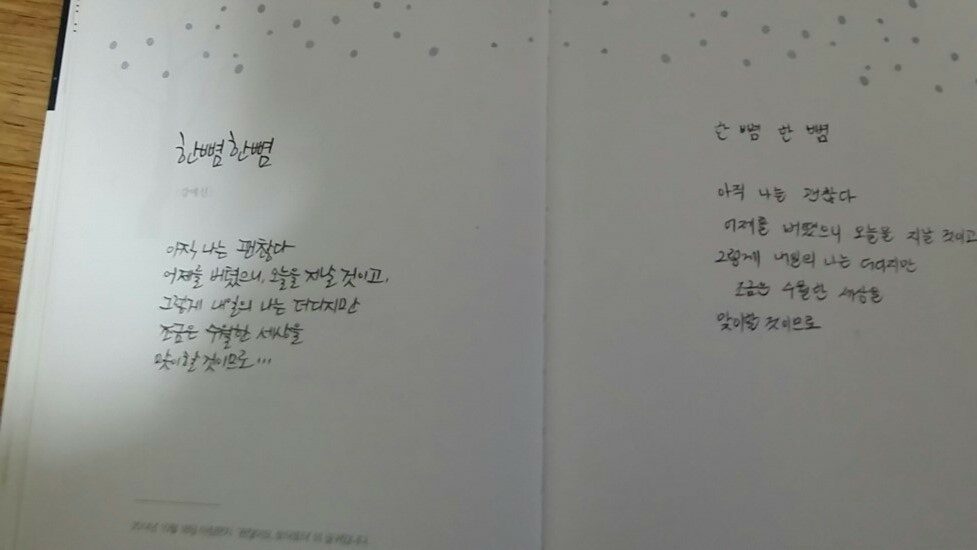 한뼘한뼘
아직 나는 괜찮다
어제를 버텼으니, 오늘을 지날 것이고,
그렇게 내일의 나는 더디지만
조금은 수월한 세상을
맞이할 것이므로...
한 뼘 한 뼘
아직 나는 괜찮다
어제를 버텼으니 오늘을 지날 것이고
그렇게 내일의 나는 더디지만
조금은 수월한 세상을
맞이할 것이므로